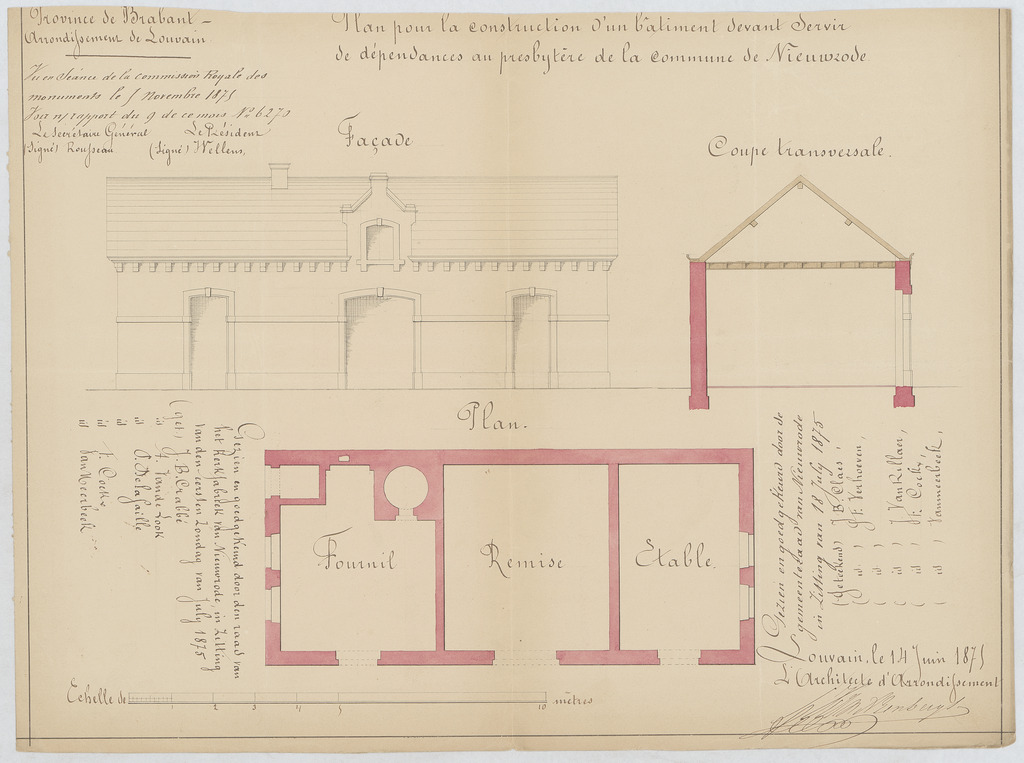 Province de Brabant –
Arrondissement de Louvain.
Plan pour la construction d'un bâtiment devant servir
de dépendances au presbytère de la commune de Nieuwrode.
Vu en Séance de la commission Royale des
monuments le 5 Novembre 1875
Voir n/ rapport du 9 de ce mois Nº 6270
Le Secrétaire Général Le Président
(Signé) Rousseau (Signé) Wellens,
Façade
Coupe transversale.
Plan.
Fournil
Remise
Etable.
Gezien en goedgekeurd door den raad van
het Kerkfabriek van Nieuwrode, in Zitting
van den eersten Zondag van July 1875
(get.) J. B. Crabbé
id A. Vande Look
id
id F. Cockx,
id Van Meerbeek
Gezien en goedgekeurd door de
gemeenteraad van Nieuwrode
in Zitting van 18 July 1875
(Geteekend) J. B. Claes,
( id ) J. F. Verhoeven,
( id )
( id ) J. VanRillaer,
( id ) F. Cockx,
( id ) Vanmeerbeek,
Louvain, le 14 Juin 1875
L'Architecte d'Arrondissement
Echelle de 1 2 3 4 5 10 mètres